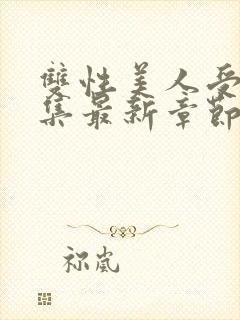 雙性美人受
集最新章節
祢嵐